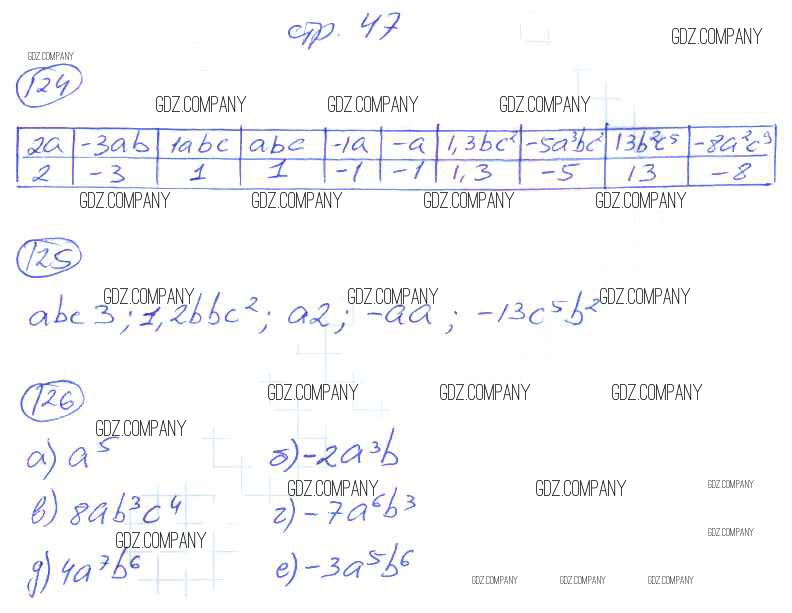 стр. 47
GDZ.COMPANY
GDZ.COMPANY
124
GDZ.COMPANY GDZ.COMPANY GDZ.COMPANY
2a -3ab 1abc abc -1a -a 1,3bc² -5a³bc² 13b²c⁵ -8a²c⁹
2 -3 1 1 -1 -1 1,3 -5 13 -8
GDZ.COMPANY GDZ.COMPANY GDZ.COMPANY GDZ.COMPANY
125
GDZ.COMPANY GDZ.COMPANY GDZ.COMPANY
abc3; 1,2bbc²; a2; -aa; -13c⁵b²
126
GDZ.COMPANY GDZ.COMPANY GDZ.COMPANY
GDZ.COMPANY
а) a⁵ б) -2a³b
GDZ.COMPANY GDZ.COMPANY GDZ.COMPANY
в) 8ab³c⁴ г) -7a⁶b³
GDZ.COMPANY GDZ.COMPANY
д) 4a⁷b⁶ е) -3a⁵b⁶
GDZ.COMPANY GDZ.COMPANY GDZ.COMPANY